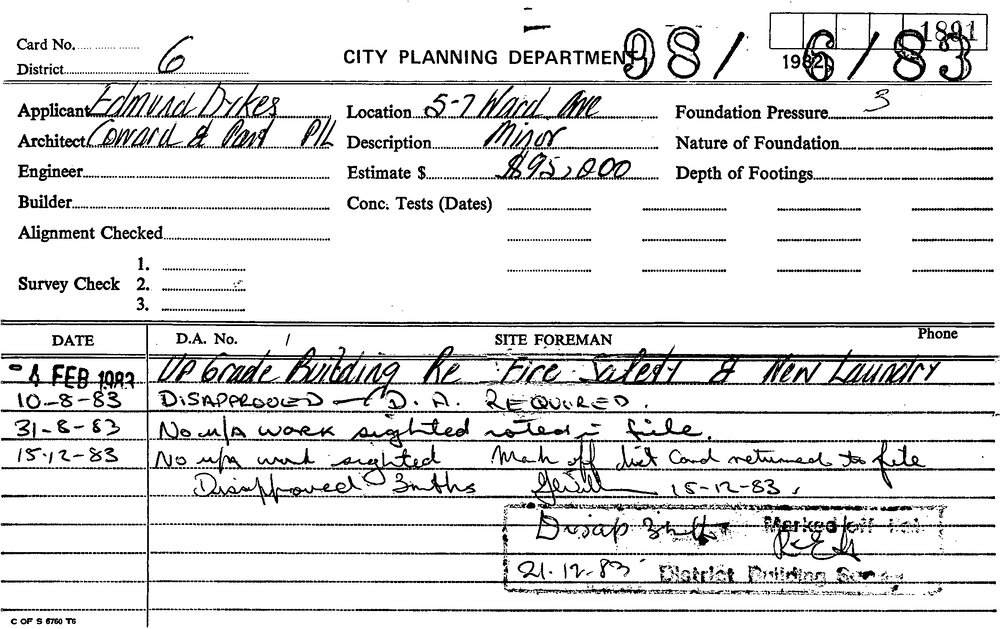 Card No.
District 6
CITY PLANNING DEPARTMENT
1891
98/6/83
Applicant Edmund Dykes
Location 5-7 Ward Ave
Foundation Pressure 3
Architect Coward & P/L
Description Minor
Nature of Foundation
Engineer
Estimate $ $95,000
Depth of Footings
Builder
Conc. Tests (Dates)
Alignment Checked
Survey Check
1.
2.
3.
DATE
D.A. No. /
SITE FOREMAN
Phone
-4 FEB 1983 Up Grade Building Re Fire Safety & New Laundry
10-8-83 DISAPPROVED — D.A. REQUIRED.
31-8-83 No u/a work sighted noted in file.
15-12-83 No u/a work sighted Mark off list Card returned to file
Disapproved 3mths 15-12-83.
Disap 3mths Marked off
21.12.83 District Building
C OF S 6760 T6